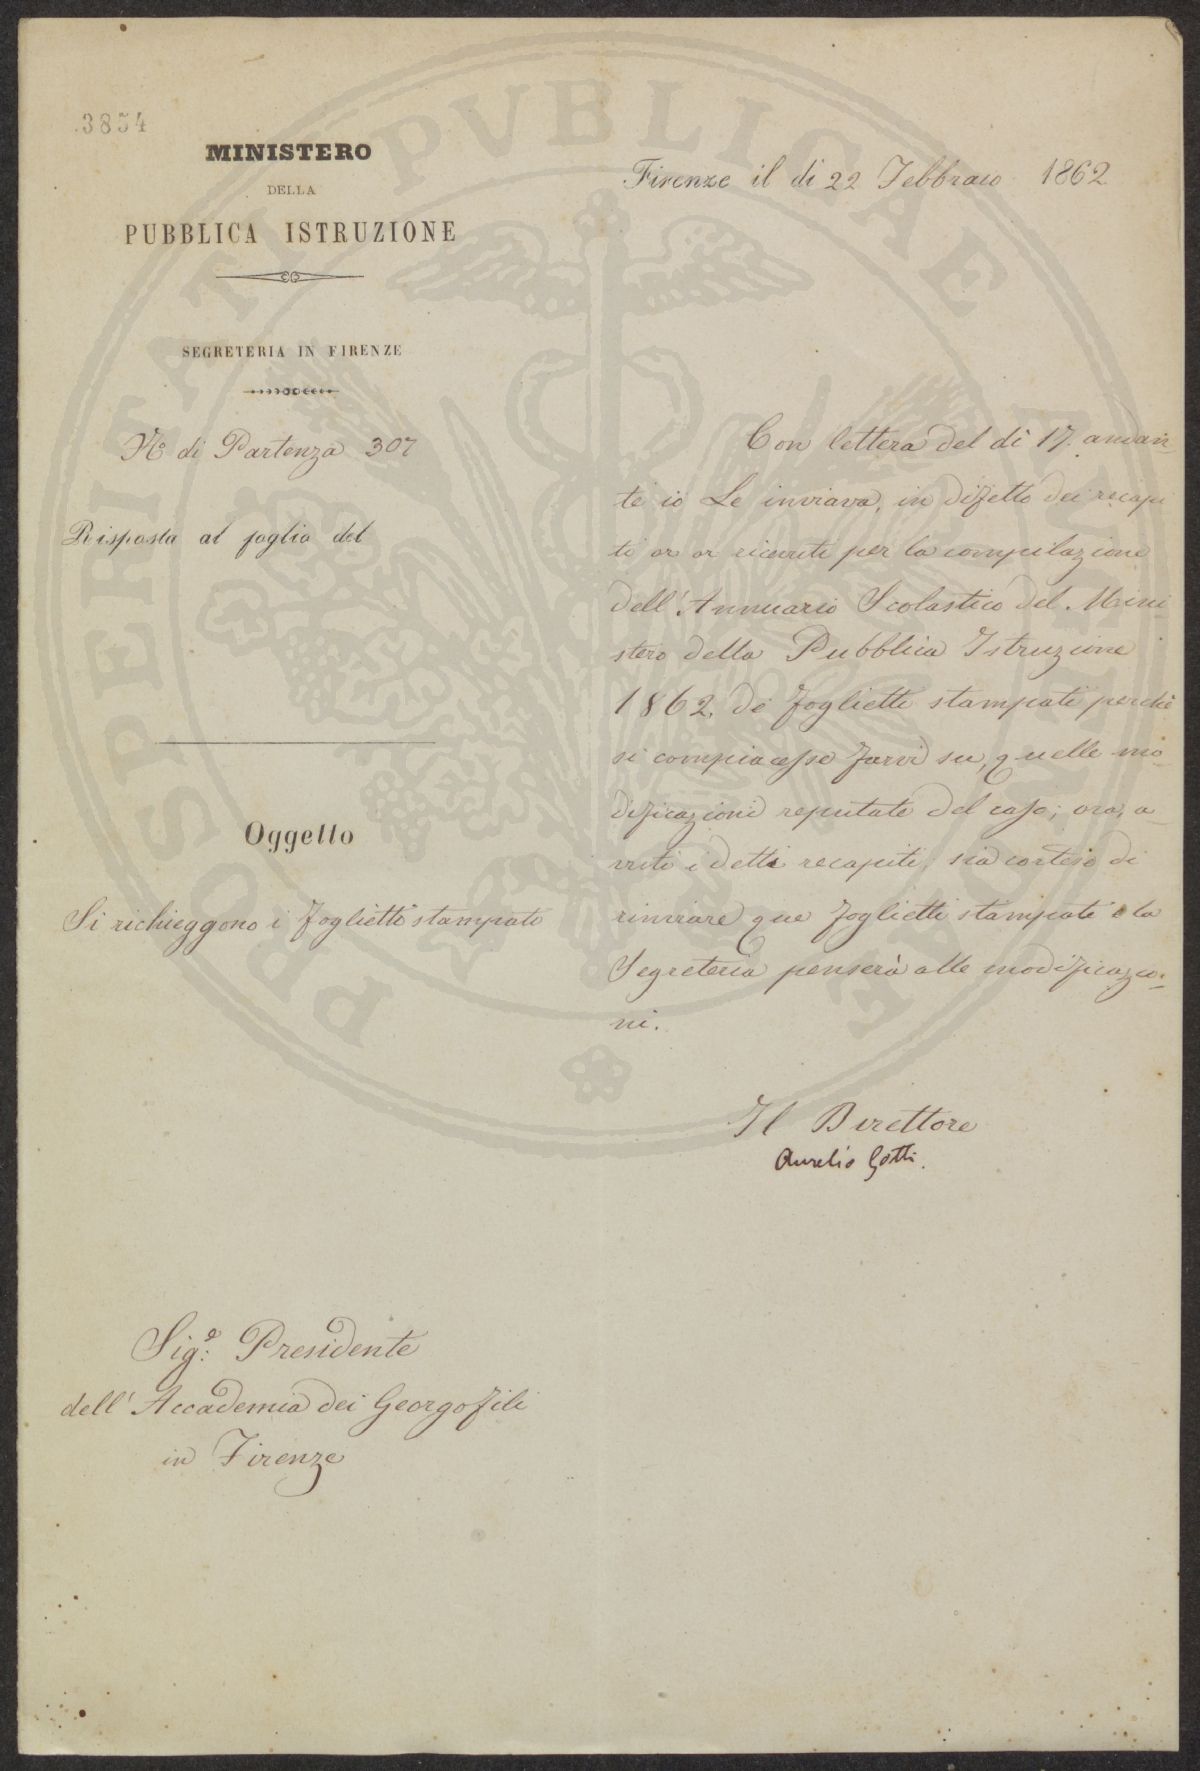 3854
MINISTERO
DELLA
PUBBLICA ISTRUZIONE
SEGRETERIA IN FIRENZE
No di Partenza 307
Risposta al foglio del
Oggetto
Si richieggono i foglietti stampati
Firenze il di 22 Febbraio 1862
Con lettera del dì 17. andan-
te io Le inviava, in difetto dei recapi
ti or or ricevuti per la compilazione
dell'Annuario Scolastico del Mini-
stero della Pubblica Istruzione
1862, de' foglietti stampati perchè
si compiacesse farvi su, quelle mo-
dificazioni reputate del caso; ora, a-
vuti i detti recapiti, sia cortese di
rinviare que' foglietti stampati e la
Segreteria penserà alle modificazio-
ni.
Il Direttore
Aurelio Gotti.
Sig.e Presidente
dell'Accademia dei Georgofili
in Firenze
PROSPERITATI PVBLICAE AVGENDAE